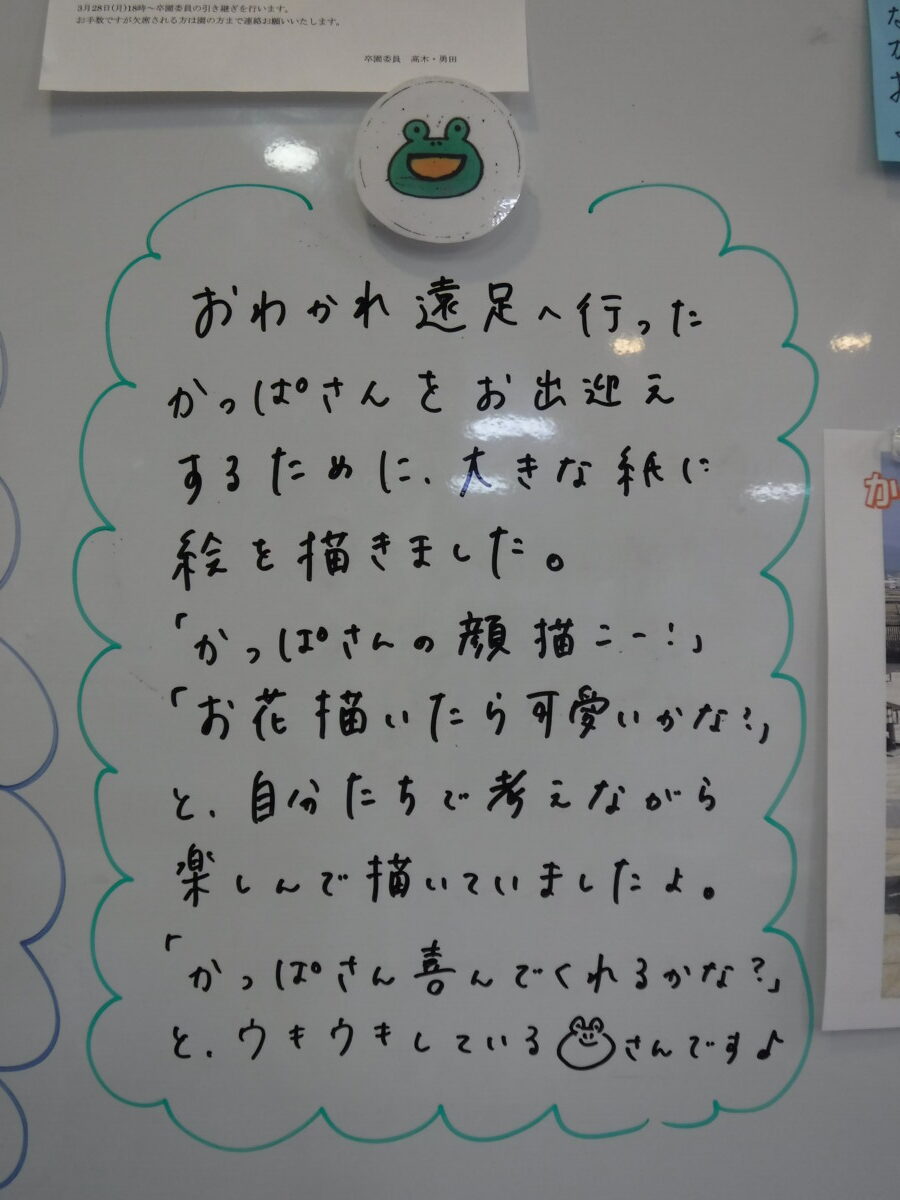 3月28日(月)18時〜卒園委員の引き継ぎを行います。
お手数ですが欠席される方は園の方まで連絡お願いいたします。
卒園委員 高木・勇田
おわかれ遠足へ行った
かっぱさんをお出迎え
するために、大きな紙に
絵を描きました。
「かっぱさんの顔描こー!」
「お花描いたら可愛いかな?」
と、自分たちで考えながら
楽しんで描いていましたよ。
「かっぱさん喜んでくれるかな?」
と、ウキウキしている さんです♪
か